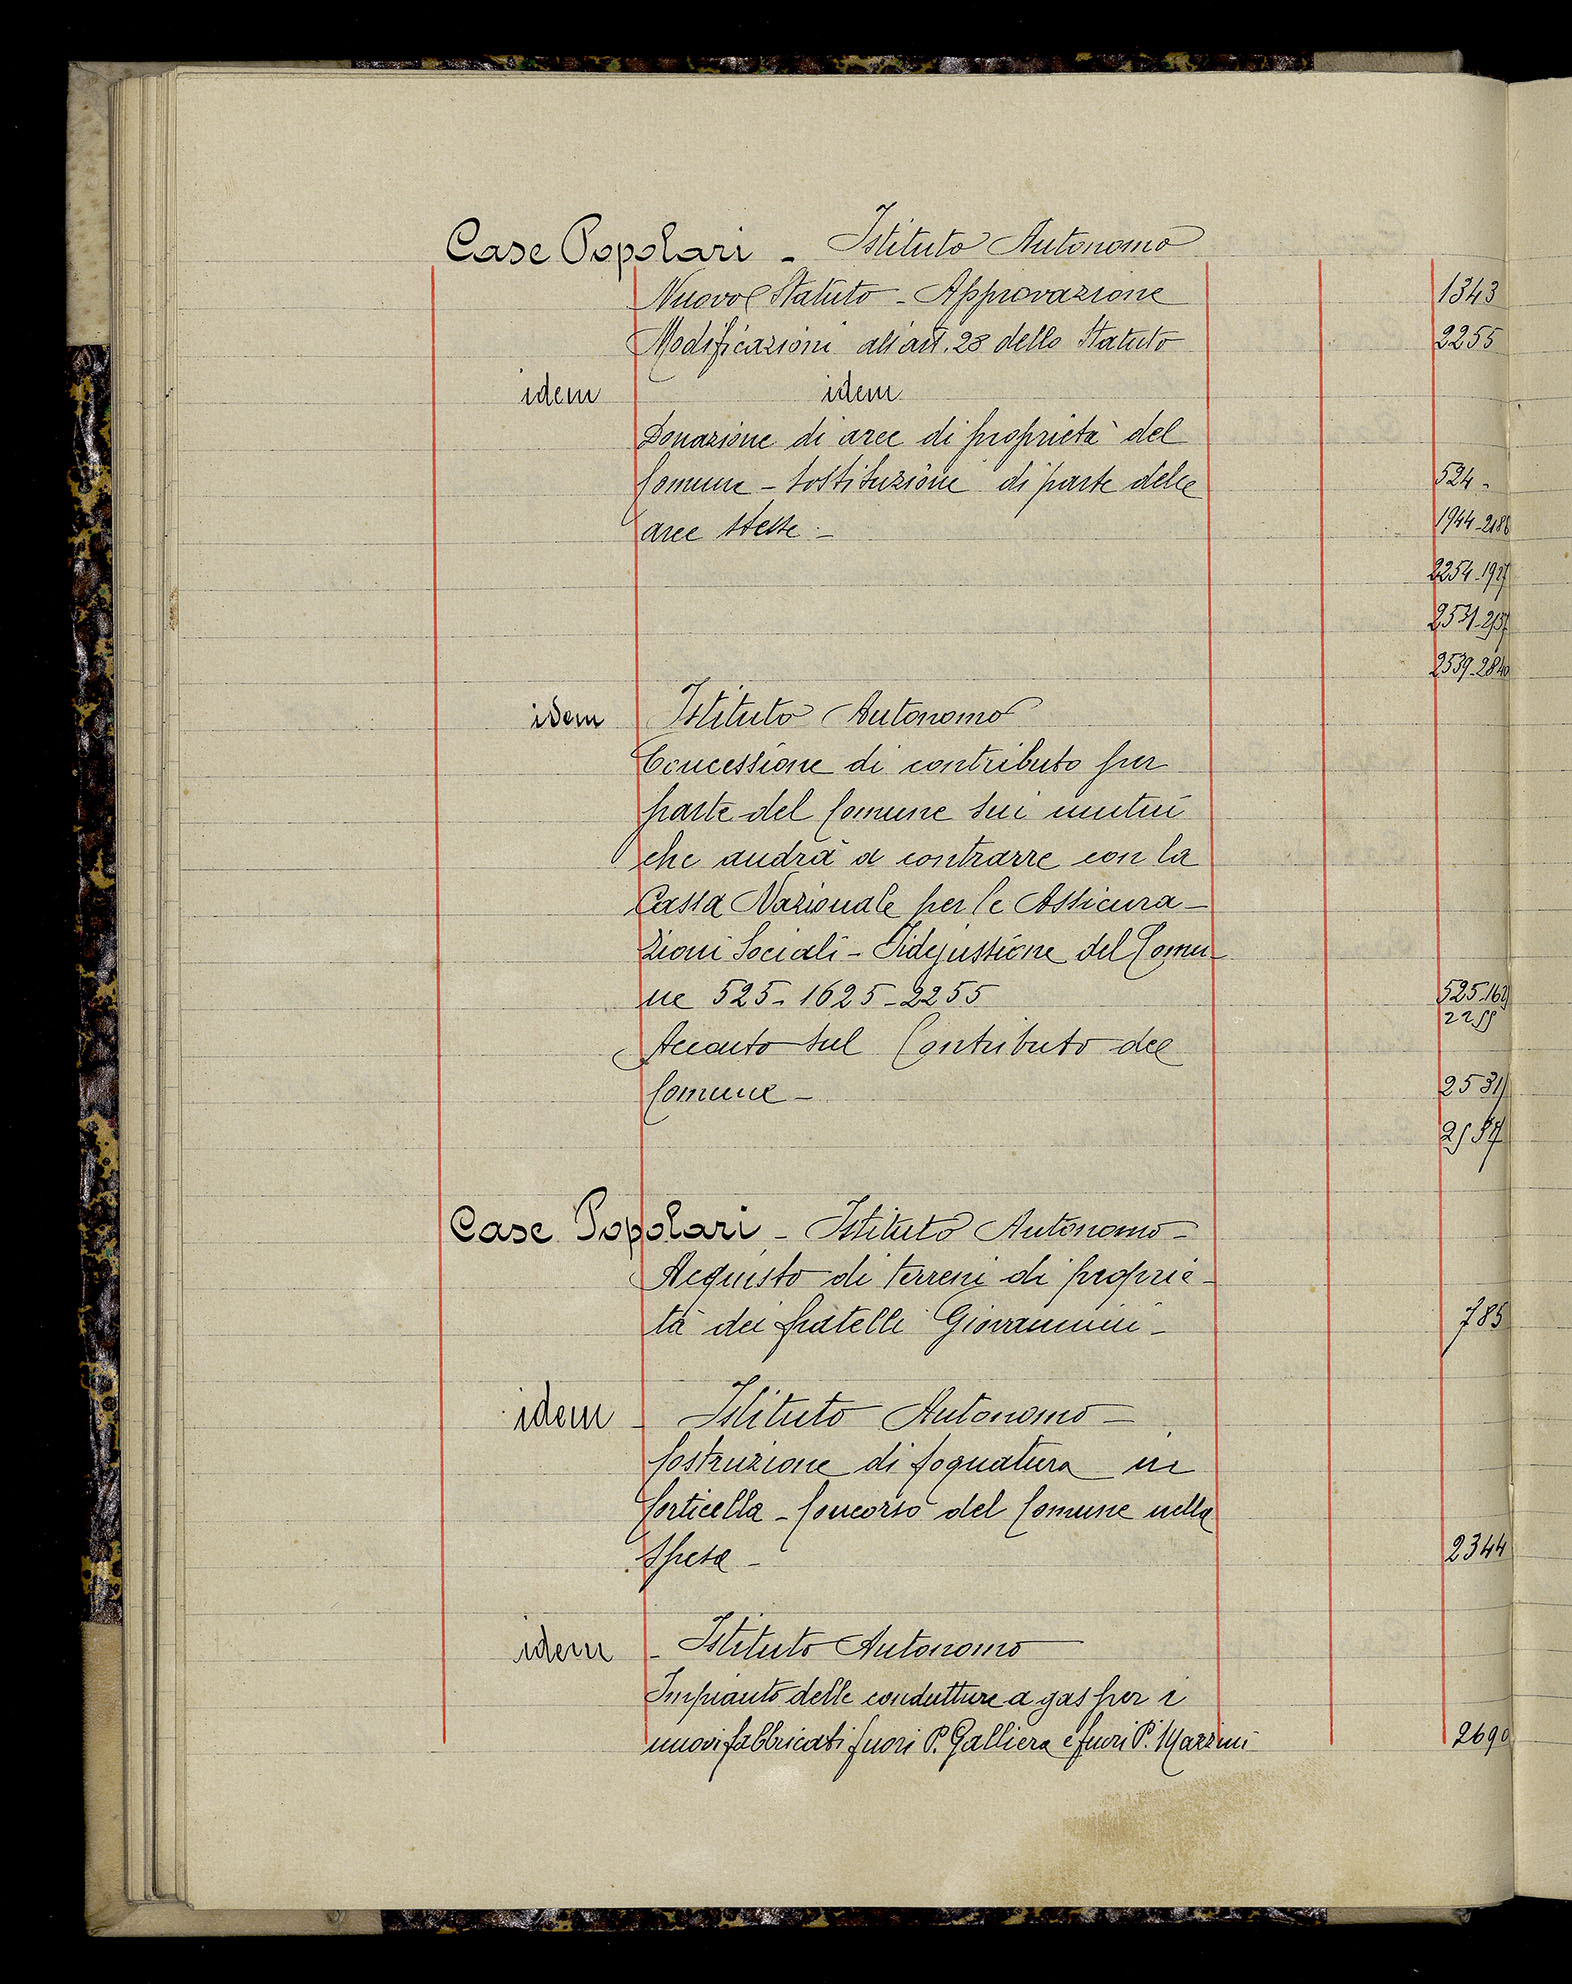 Case Popolari - Istituto Autonomo
Nuovo Statuto - Approvazione 1343
Modificazioni all'art. 23 dello Statuto 2255
idem idem
Donazione di aree di proprietà del
Comune - Sostituzione di parte delle 524 -
aree stesse - 1944-2186
2254-1927
2531-2157
2539-2840
idem Istituto Autonomo
Concessione di contributo per
parte del Comune sui mutui
che andrà a contrarre con la
Cassa Nazionale per le Assicura-
zioni Sociali - Fidejussione del Comu-
ne 525-1625-2255 525-1625
2255
Acconto sul Contributo del
Comune - 2531
2157
Case Popolari - Istituto Autonomo -
Acquisto di terreni di proprie-
tà dei fratelli Giovannini - 785
idem - Istituto Autonomo -
Costruzione di fognatura in
Corticella - Concorso del Comune nella
spesa - 2344
idem - Istituto Autonomo
Impianto delle condutture a gas per i
nuovi fabbricati fuori P. Galliera e fuori P. Mazzini 2690